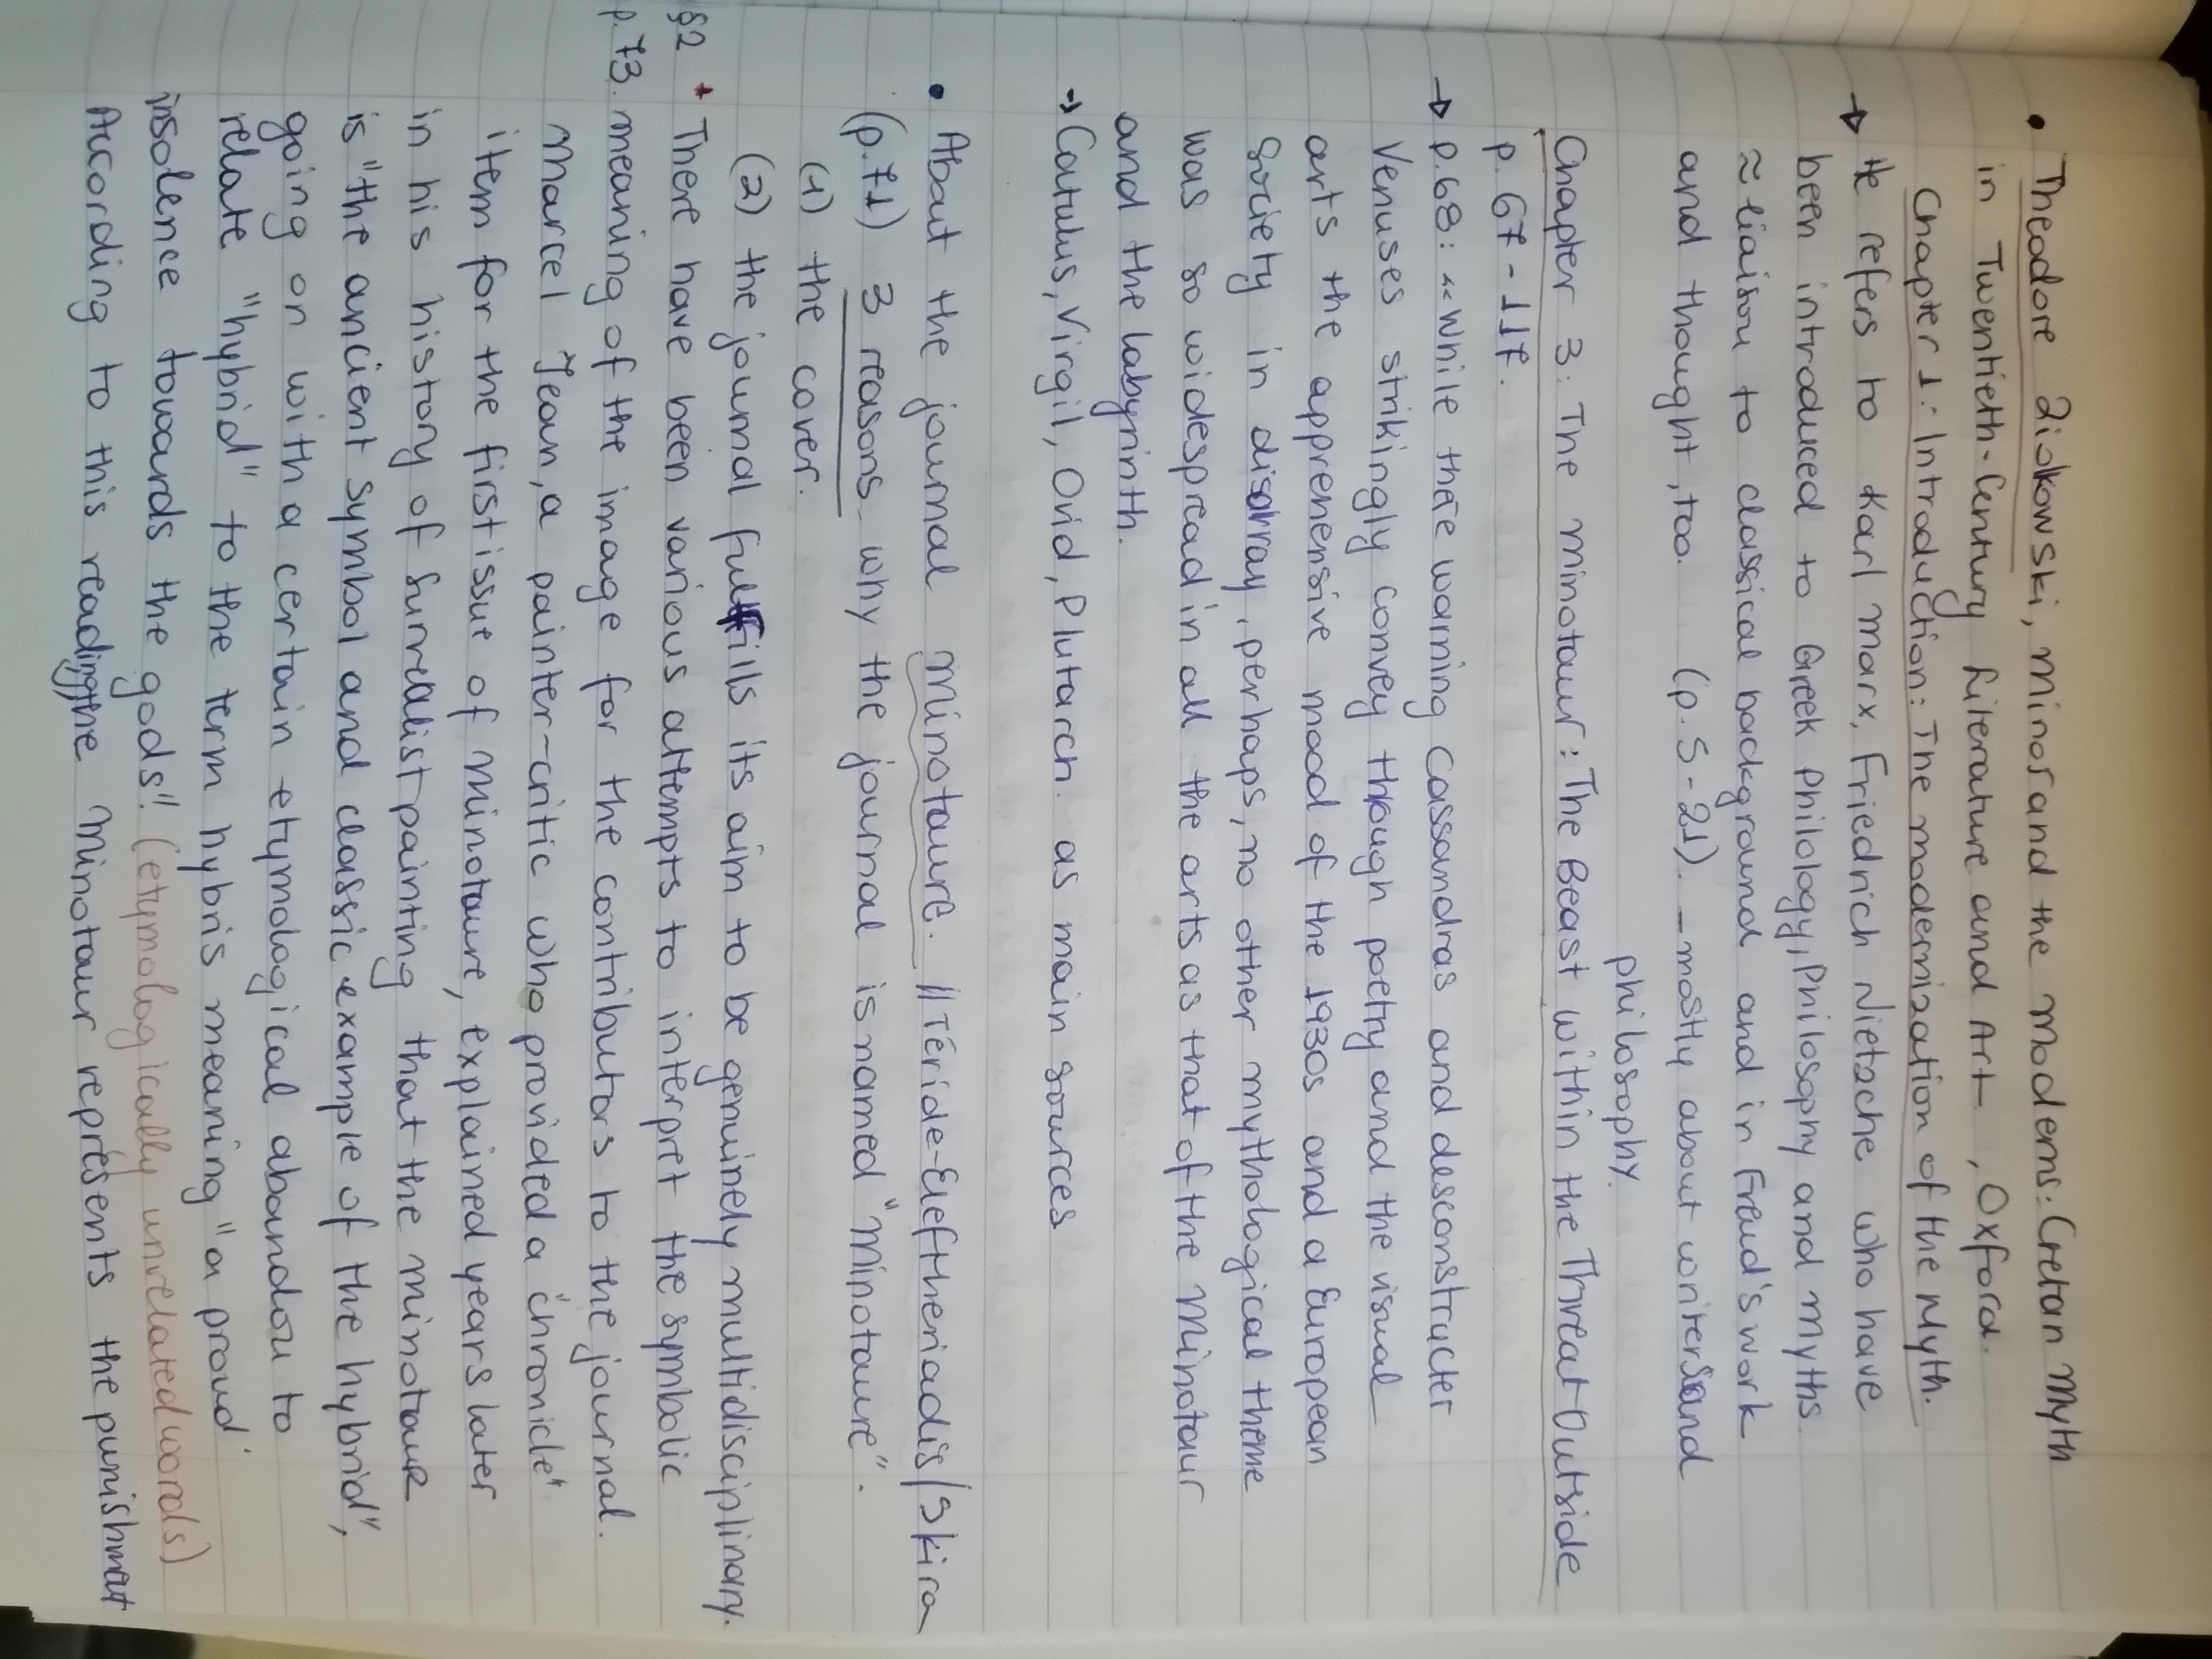 • Theodore Ziolkowski, Minos and the Moderns: Cretan Myth
in Twentieth-Century Literature and Art , Oxford.
Chapter 1: Introduction: The modernization of the Myth.
→ He refers to Karl Marx, Friedrich Nietzche who have
been introduced to Greek Philology, Philosophy and myths
≈ liaison to classical background and in Freud's work
and thought, too. (p. 5-21). - mostly about writers and
philosophy.
Chapter 3: The Minotaur: The Beast within the Threat Outside
p. 67-117.
→ p.68: "While there warning Cassandras and desconstructer
Venuses strikingly convey though poetry and the visual
arts the apprenensive mood of the 1930s and a European
society in disarray, perhaps, no other mythological theme
was so widespread in all the arts as that of the Minotaur
and the labyrinth.
→ Catulus, Virgil, Ovid, Plutarch as main sources
• About the journal Minotaure. || Téride-Eleftheriadis/Skira
(p.71) 3 reasons why the journal is named "Minotaure".
(1) the cover.
(2) the journal fullfills its aim to be genuinely multidisciplinary.
§2 + There have been various attempts to interpret the symbolic
p.73. meaning of the image for the contributors to the journal.
Marcel Jean, a painter-critic who provided a "chronicle"
item for the first issue of Minotaure, explained years later
in his history of Surrealist painting that the minotaur
is "the ancient symbol and classic example of the hybrid",
going on with a certain etymological abandon to
relate "hybrid" to the term hybris meaning "a proud
insolence towards the gods"! (etymologically unrelated words)
According to this reading the Minotaur represents the punishment